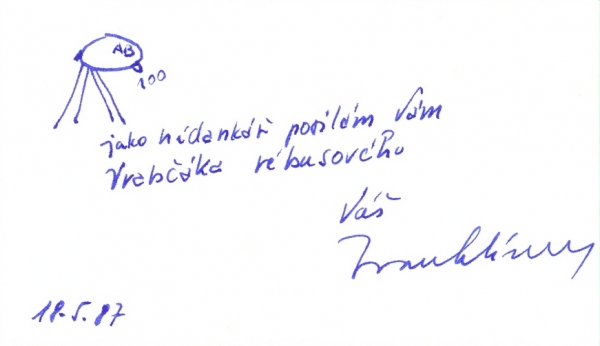 AB
100
jako hádankář posílám Vám
Vrabčáka rébusového
Váš
18.5.87